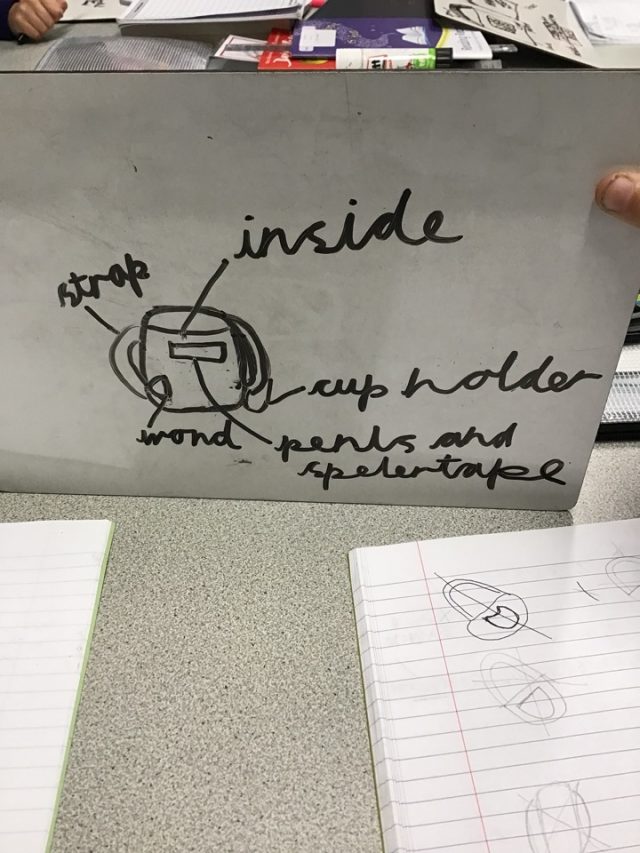 inside
strap
cup holder
wond
penls and
spelertape